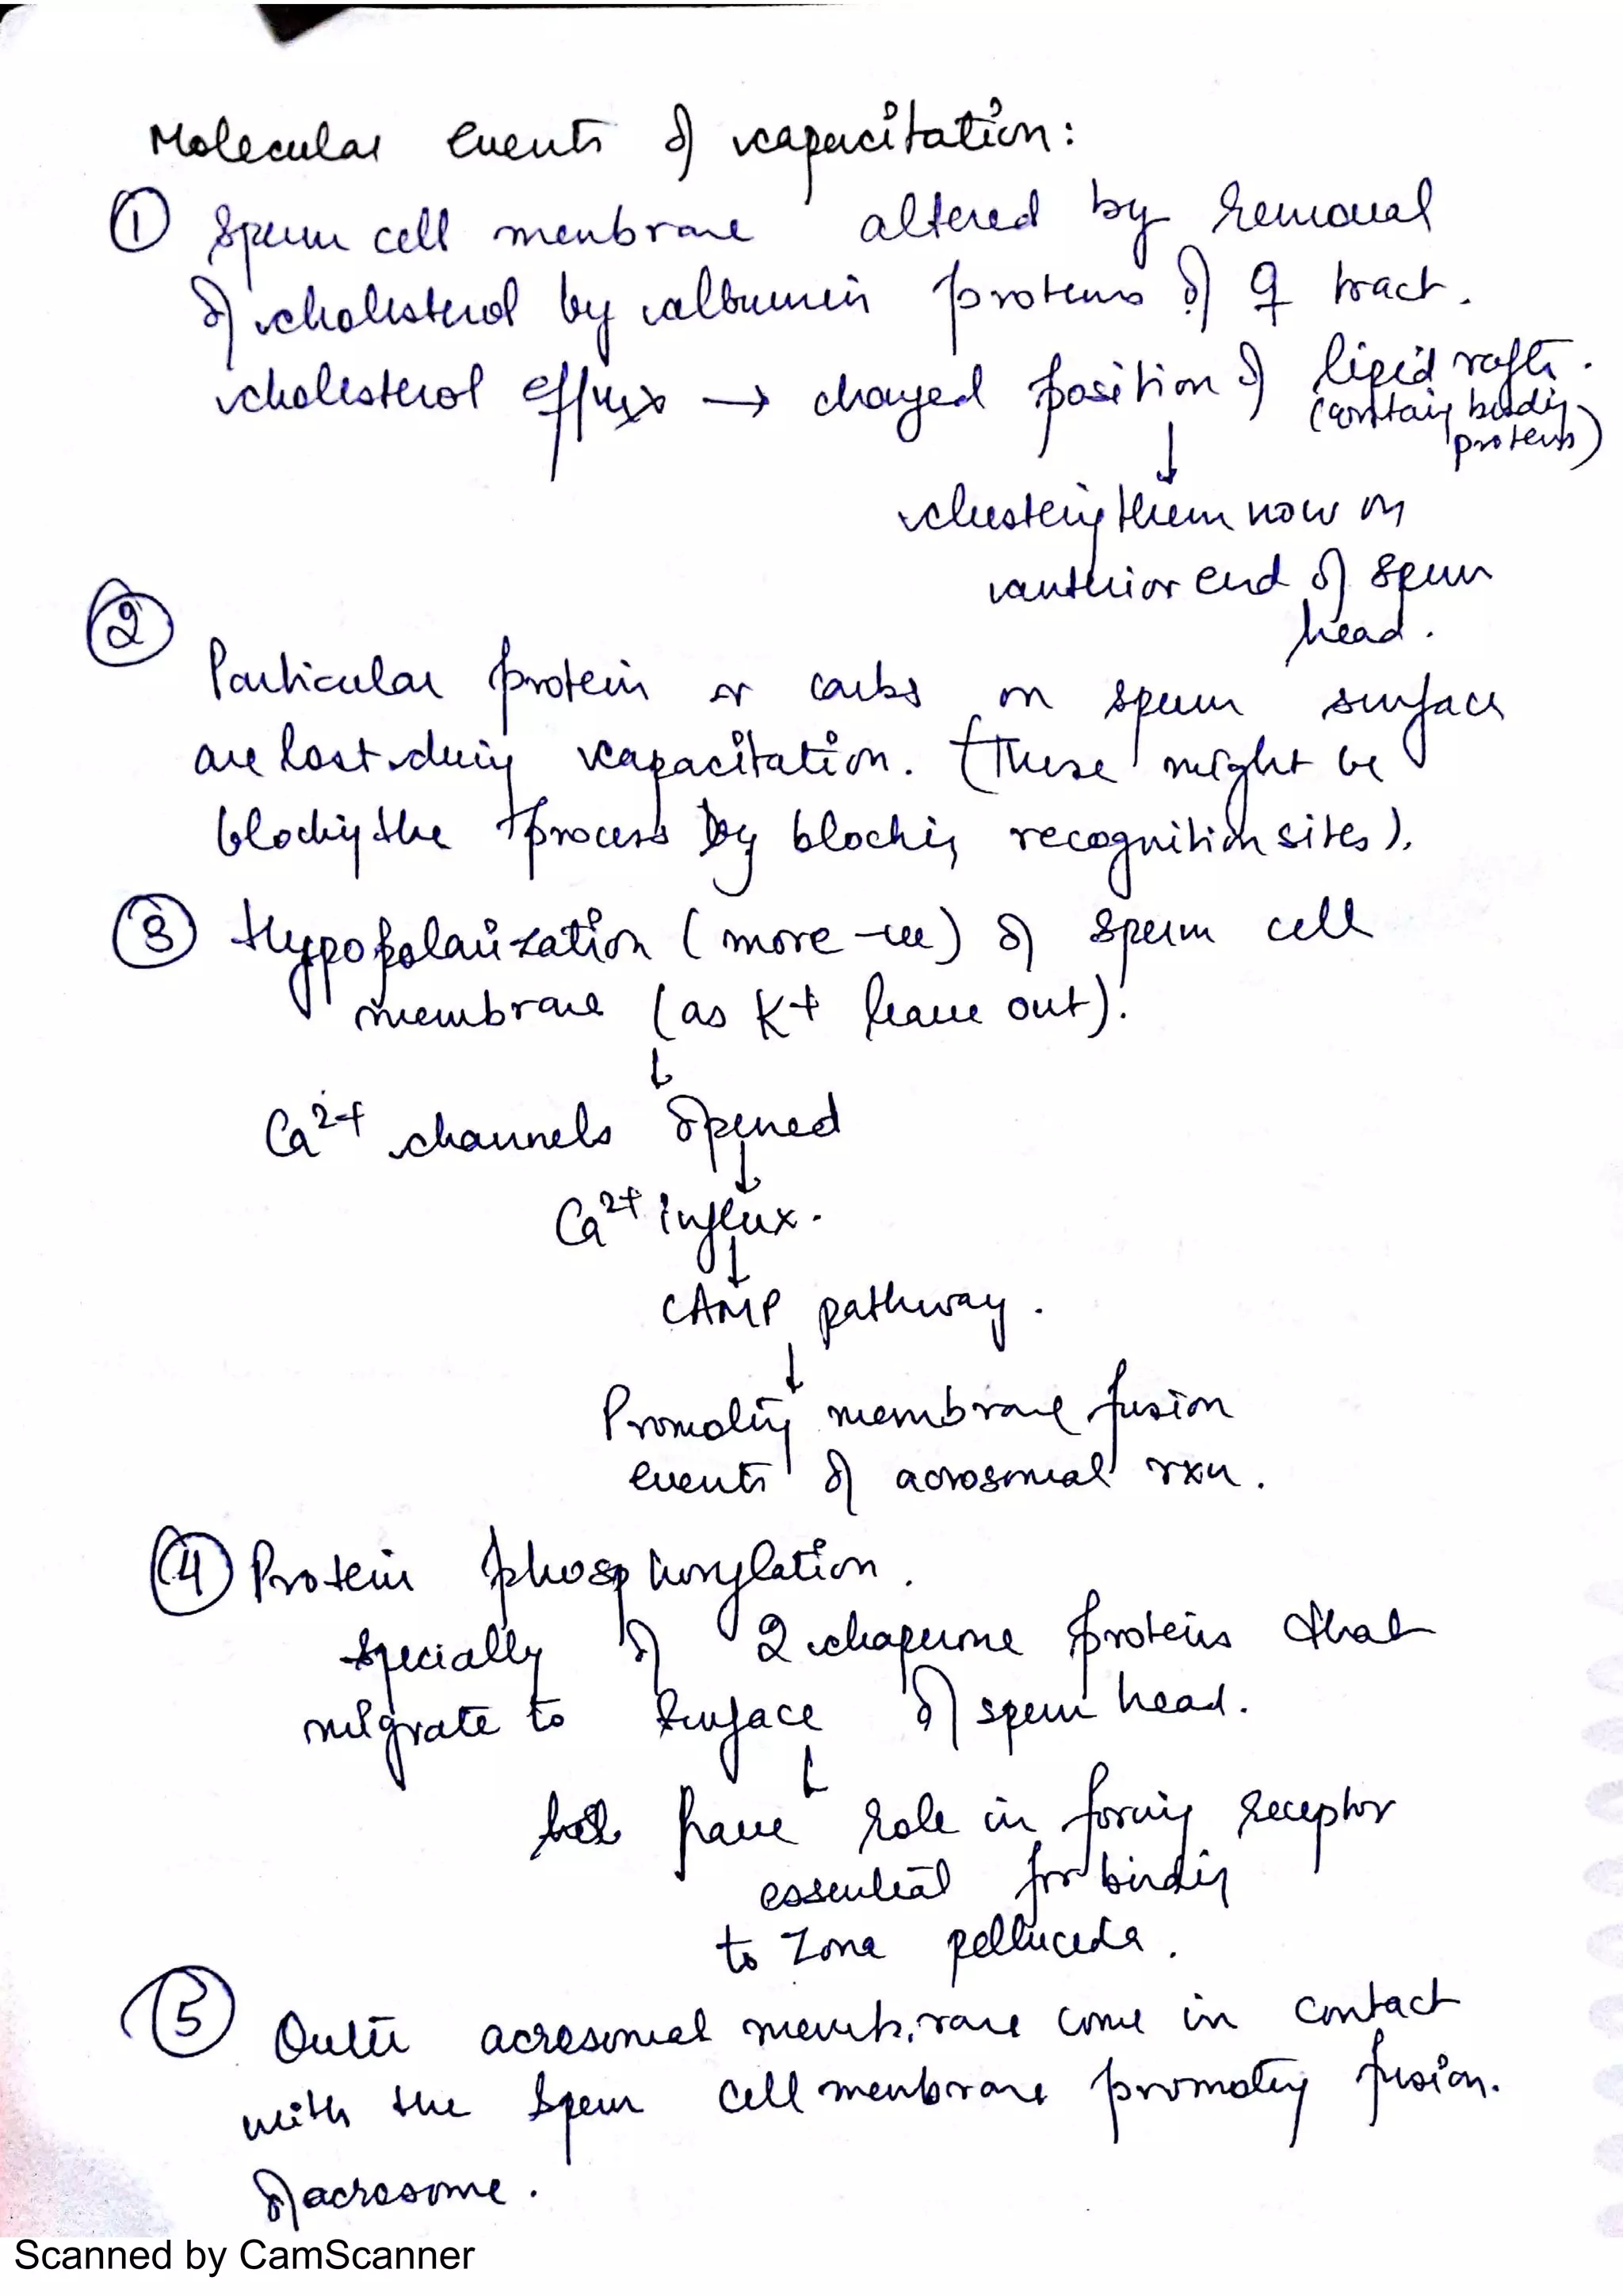 Molecular events of capacitation:
① Sperm cell menbrane altered by removal
of cholesterol by albumin proteins of ♀ tract.
cholesterol efflux → changed position of lipid rafts.
(contain binding
proteins)
↓
clustering them now on
anterior end of sperm
head.
②
Particular protein or carbs on sperm surface
are lost during capacitation. (These might be
blocking the process by blocking recognition sites).
③ Hypopolarization (more -ve) of sperm cell
membrane (as K+ leave out).
↓
Ca2+ channels opened
↓
Ca2+ influx.
↓
cAMP pathway.
↓
Promoting membrane fusion
events of acrosomal rxn.
④ Protein phosphorylation.
specially of 2 chaperone proteins that
migrate to surface of sperm head.
↓
have role in forming receptor
essential for binding
to zona pellucida.
⑤ Outer acrosomal membrane come in contact
with the sperm cell menbrane promoting fusion.
of acrosome.
Scanned by CamScanner